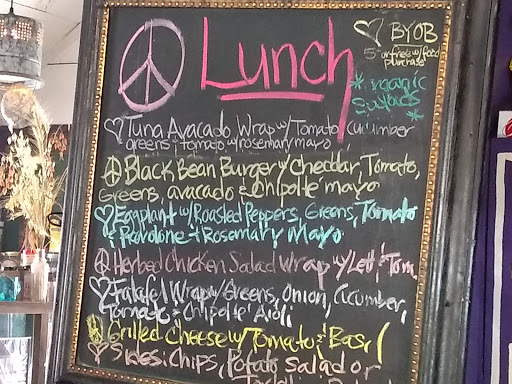 Lunch
BYOB
5" or free w/ food
purchase
* organic
Salads *
Tuna Avacado Wrap w/ Tomato, cucumber
greens & tomato w/ rosemary mayo
Black Bean Burger w/ Cheddar, Tomato,
Greens, avacado & Chipotle mayo
Eggplant w/ Roasted Peppers, Greens, Tomato
& Provolone & Rosemary Mayo
Herbed Chicken Salad Wrap w/ Lett & Tom.
Falafel Wrap w/ Greens, Onion, Cucumber,
Tomato & Chipotle Aioli
Grilled Cheese w/ Tomato & Basil
Sides: Chips, Potato Salad or